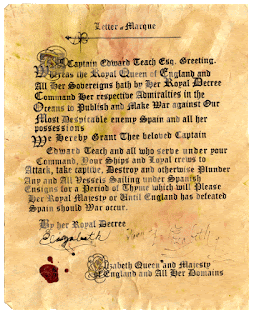 Letter of Marque
To Captain Edward Teach Esq. Greeting.
Whereas the Royal Queen of England and
All Her Sovereigns hath by Her Royal Decree
Command Her respective Admiralties in the
Oceans to Publish and Make War against Our
Most Despicable enemy Spain and all her
possessions
We Hereby Grant Thee beloved Captain
Edward Teach and all who serve under your
Command, Your Ships and Loyal crews to
Attack, take captive, Destroy and otherwise Plunder
Any and All Vessels Sailing under Spanish
Ensigns for a Period of Thyme which will Please
Her Royal Majesty or Until England has defeated
Spain should War occur.
By her Royal Decree
Elizabeth
Elizabeth Queen and Majesty
of England and All Her Domains